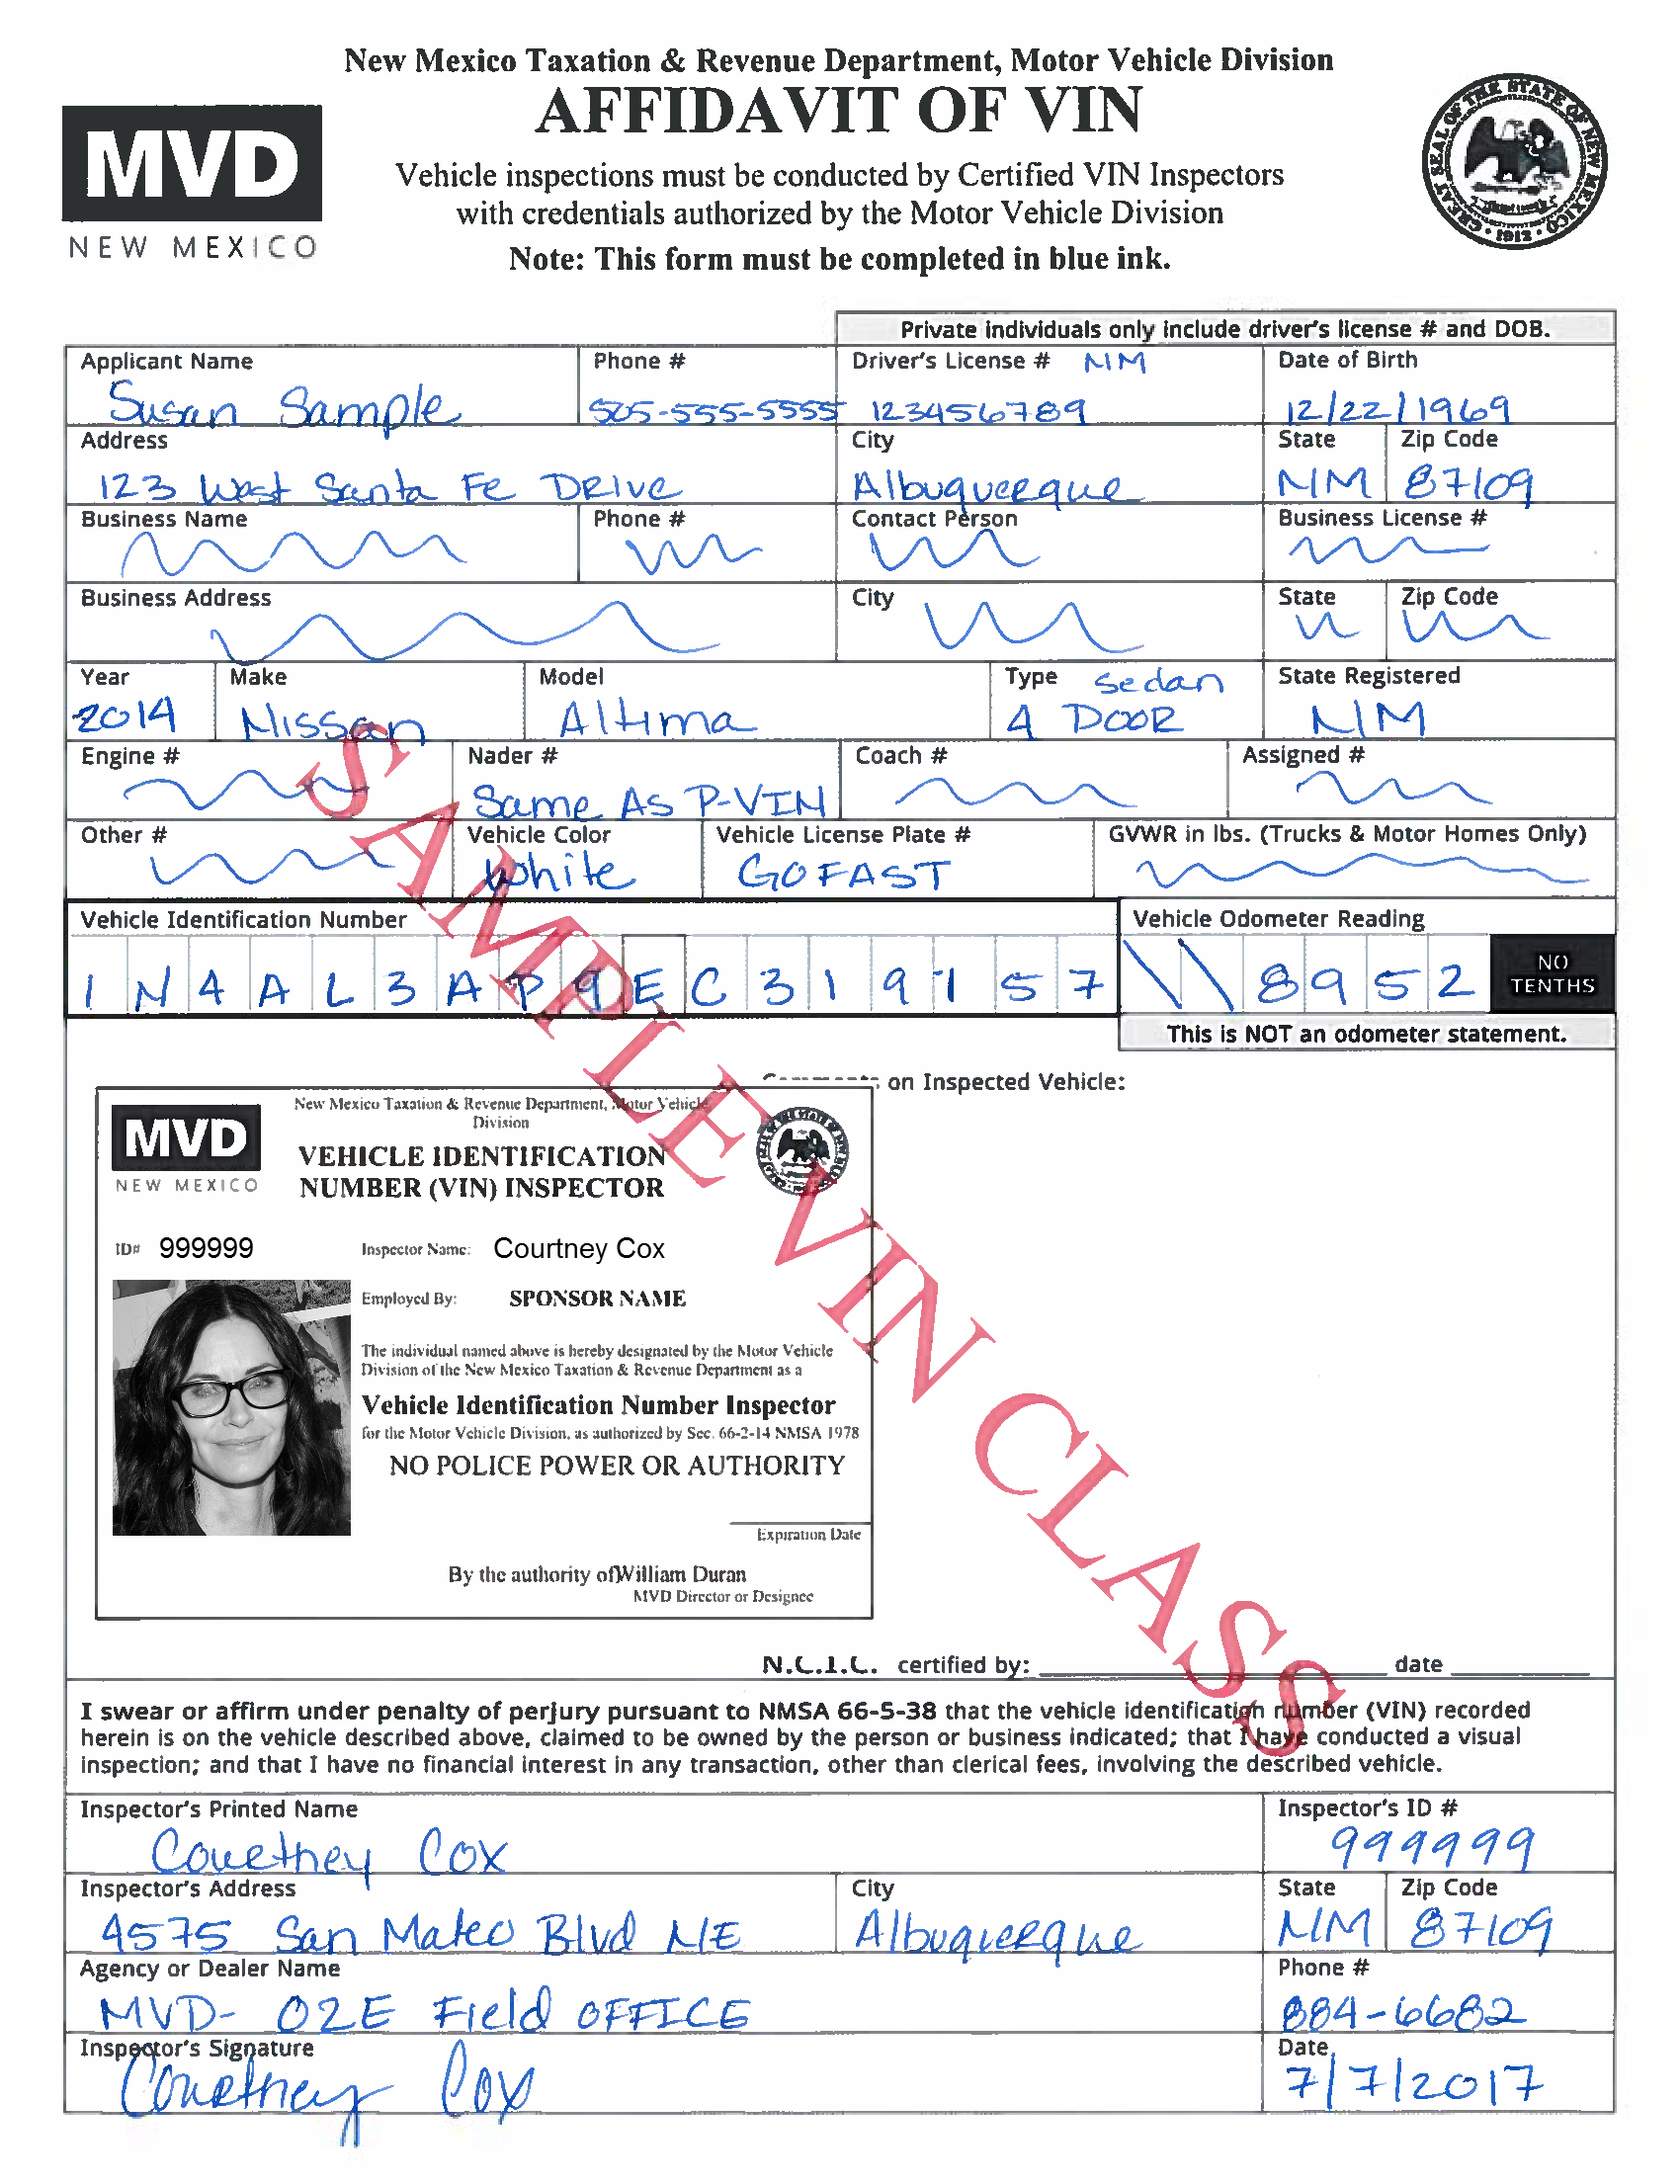 New Mexico Taxation & Revenue Department, Motor Vehicle Division
AFFIDAVIT OF VIN
MVD
NEW MEXICO
Vehicle inspections must be conducted by Certified VIN Inspectors
with credentials authorized by the Motor Vehicle Division
Note: This form must be completed in blue ink.
GREAT SEAL OF THE STATE OF NEW MEXICO
1912
Private individuals only include driver's license # and DOB.
Applicant Name Phone # Driver's License # NM Date of Birth
Susan Sample 505-555-5555 123456789 12/22/1969
Address City State Zip Code
123 West Santa Fe Drive Albuquerque NM 87109
Business Name Phone # Contact Person Business License #
Business Address City State Zip Code
Year Make Model Type Sedan State Registered
2014 Nissan Altima 4 DOOR NM
Engine # Nader # Coach # Assigned #
Same AS P-VIN
Other # Vehicle Color Vehicle License Plate # GVWR in lbs. (Trucks & Motor Homes Only)
White GOFAST
Vehicle Identification Number Vehicle Odometer Reading
1 N 4 A L 3 A P 9 E C 3 1 9 1 5 7 \ \ 8 9 5 2 NO TENTHS
This is NOT an odometer statement.
on Inspected Vehicle:
New Mexico Taxation & Revenue Department, Motor Vehicle
Division
MVD
NEW MEXICO
VEHICLE IDENTIFICATION
NUMBER (VIN) INSPECTOR
ID# 999999 Inspector Name: Courtney Cox
Employed By: SPONSOR NAME
The individual named above is hereby designated by the Motor Vehicle
Division of the New Mexico Taxation & Revenue Department as a
Vehicle Identification Number Inspector
for the Motor Vehicle Division, as authorized by Sec. 66-2-14 NMSA 1978
NO POLICE POWER OR AUTHORITY
Expiration Date
By the authority of William Duran
MVD Director or Designee
SAMPLE VIN CLASS
N.C.I.C. certified by: date
I swear or affirm under penalty of perjury pursuant to NMSA 66-5-38 that the vehicle identification number (VIN) recorded
herein is on the vehicle described above, claimed to be owned by the person or business indicated; that I have conducted a visual
inspection; and that I have no financial interest in any transaction, other than clerical fees, involving the described vehicle.
Inspector's Printed Name Inspector's ID #
Courtney Cox 999999
Inspector's Address City State Zip Code
4575 San Mateo Blvd NE Albuquerque NM 87109
Agency or Dealer Name Phone #
MVD- 02E Field OFFICE 884-6682
Inspector's Signature Date
Courtney Cox 7/7/2017